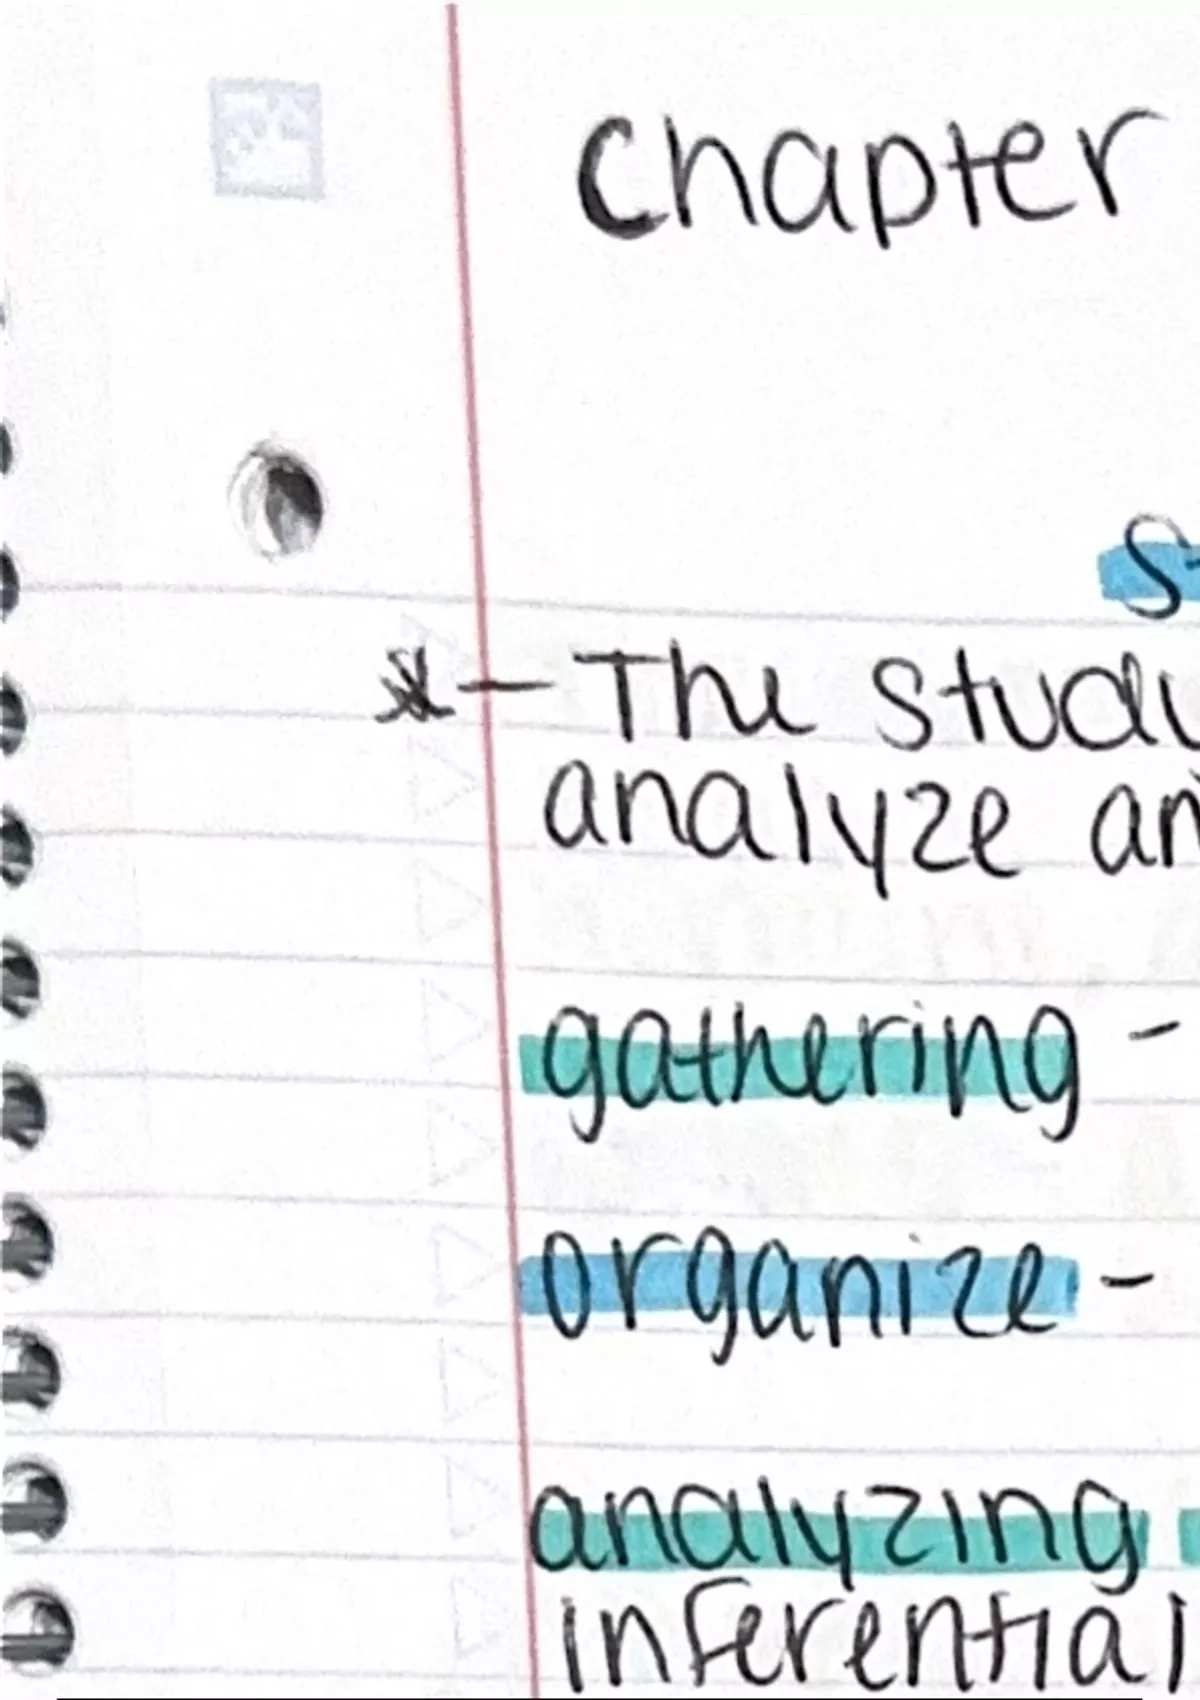 chapter
* - The study
analyze an
gathering -
organize -
analyzing
inferential